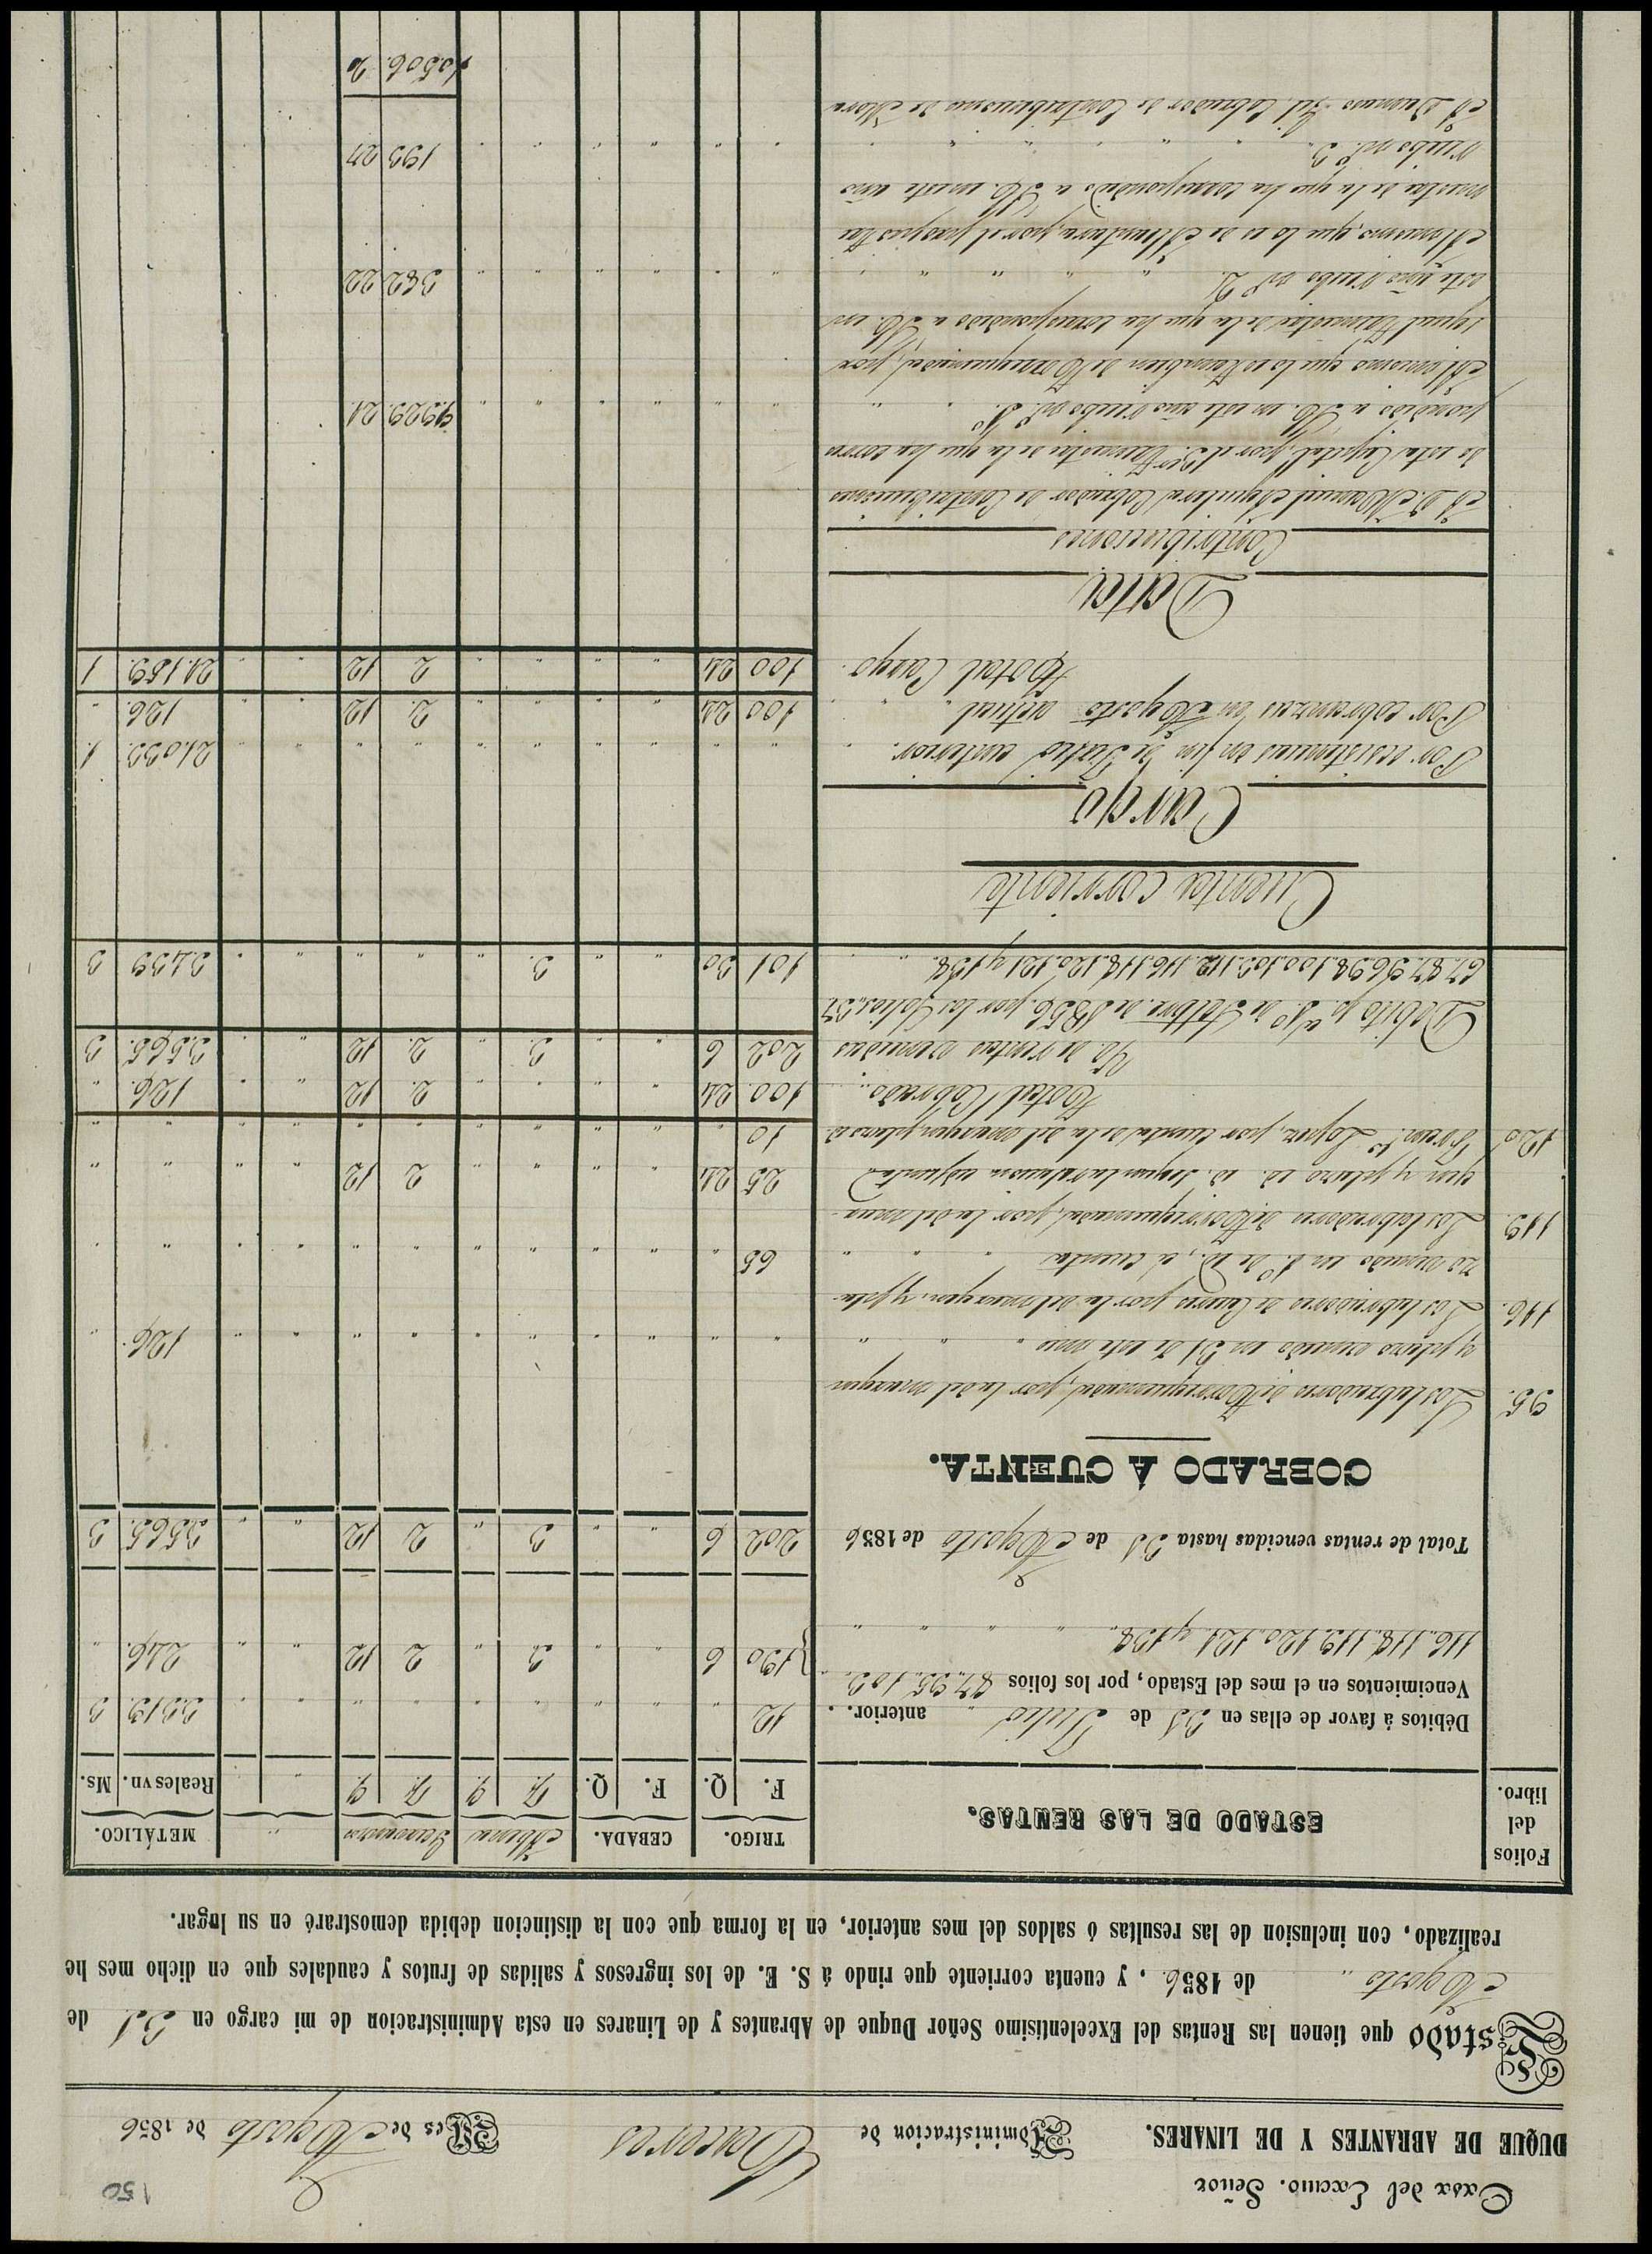 150
Casa del Excmo. Señor
DUQUE DE ABRANTES Y DE LINARES. Administracion de Caceres Mes de Agosto de 1856
Estado que tienen las Rentas del Excelentísimo Señor Duque de Abrantes y de Linares en esta Administracion de mi cargo en 31 de
Agosto " de 1856. , y cuenta corriente que rindo á S. E. de los ingresos y salidas de frutos y caudales que en dicho mes he
realizado, con inclusion de las resultas ó saldos del mes anterior, en la forma que con la distincion debida demostraré en su lugar.
Folios del libro. ESTADO DE LAS RENTAS. TRIGO. CEBADA. Abena METÁLICO.
F. Q. F. Q. F. Q. F. Q. " Reales vn. Ms.
Débitos á favor de ellas en 31 de Julio anterior. 12 " " " " " " " " " 3319. 3
Vencimientos en el mes del Estado, por los folios 87..95..103..
116..118..119..120..121 y 138. 190 6 " " 3 " 2 12 " " 246. "
Total de rentas vencidas hasta 31 de Agosto de 1856 202 6 " " 3 " 2 12 " " 3565. 3
COBRADO Á CUENTA.
95. Los labradores de Torrequemada, por la del margen
y plazo vencido en 31 de este mes " " " " " " " " " " 126. "
116. Los labradores de Cuarto por la del margen, y pla-
zo vencido en 1º de id., á cuenta 65 " " " " " " " " " " "
119. Los labradores de Torrequemada, por la del mar-
gen y plazo id. id. segun la relacion adjunta 25 24 " " " " 2 12 " " " "
120. Franco. Lopez, por cuenta de la del margen, plazo id. 10 " " " " " " " " " " "
Total Cobrado. 100. 24 " " " " 2. 12 " " 126. "
Yd. de rentas vencidas 202 6 " " 3. " 2. 12 " " 3.565. 3
Débito pa. 1º de Setbre. de 1856. por los folios, 37
67..87..96..98..100..103..112..116..118..120..121 y 138. 101 30 " " 3. " " " " " 3.439 3
Cuenta corriente
Cargo
Por existencias en fin de Julio anterior. " " " " " " " " " " 21.033. 1.
Por cobranzas en Agosto actual 100 24 " " " " 2. 12 " " 126. "
Total Cargo 100 24 " " " " 2 12 " " 21.159. 1
Data
Contribuciones
A D. Manuel Aguilera Cobrador de Contribuciones
de esta Capital, por el 3er. trimestre de la que ha corres-
pondido a S.E. en este año recibo nº. 1º. 9.929. 21.
Al mismo que lo es tambien de Torrequemada, por
igual trimestre de la que ha correspondido a S.E. en
este año recibo nº 2. 382 22
Al mismo, que lo es de
mestre de la que ha correspondido a S.E. en este año
recibo nº. 3. 193 27
A Damaso Gil Cobrador de Contribuciones de Mora
10.506. 2